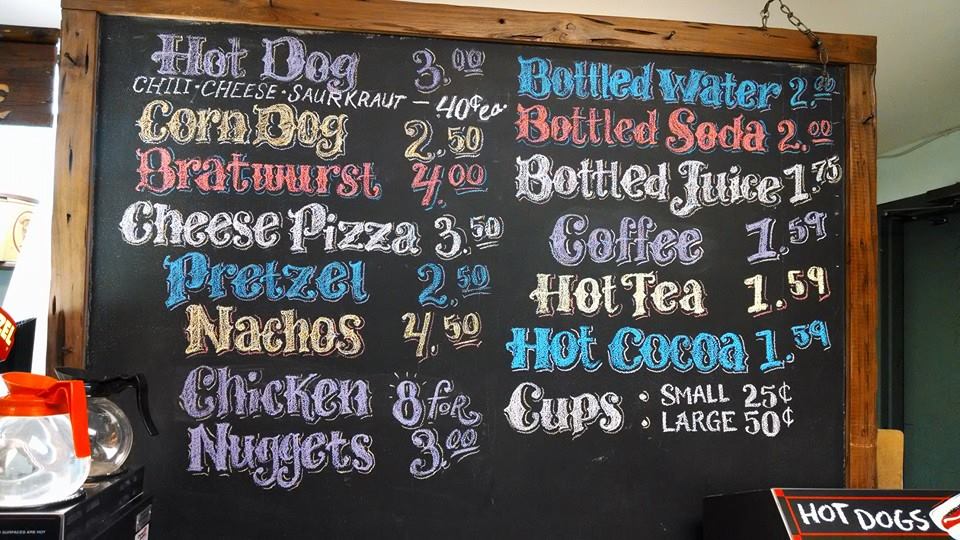 Hot Dog 3.00
CHILI · CHEESE · SAURKRAUT - 40¢ ea
Corn Dog 2.50
Bratwurst 4.00
Cheese Pizza 3.50
Pretzel 2.50
Nachos 4.50
Chicken Nuggets 8 for 3.00
Bottled Water 2.00
Bottled Soda 2.00
Bottled Juice 1.75
Coffee 1.59
Hot Tea 1.59
Hot Cocoa 1.59
Cups : SMALL 25¢
LARGE 50¢
HOT DOGS
SURFACES ARE HOT